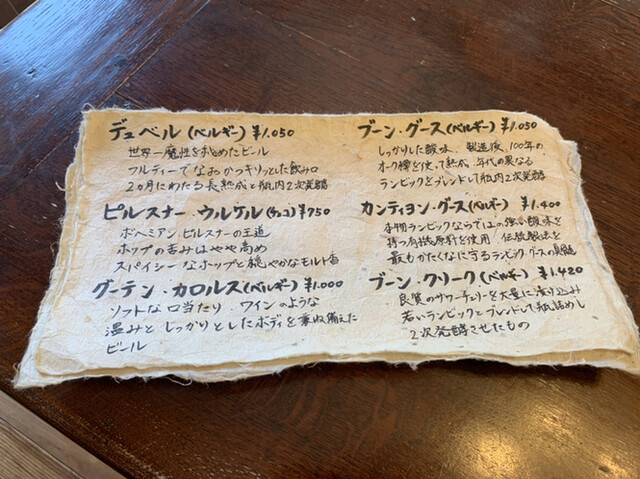 デュベル (ベルギー) ¥1.050
世界一魔性を秘めたビール
フルーティーでなおかつキリッとした飲み口
2ヵ月にわたる長熟成と瓶内2次発酵
ピルスナー・ウルケル(チェコ) ¥750
ボヘミアンピルスナーの王道
ホップの苦みはやや高め
スパイシーなホップと穏やかなモルト香
グーテン・カロルス(ベルギー) ¥1.000
ソフトな口当たり、ワインのような
温みとしっかりとしたボディを兼ね備えた
ビール
ブーン・グース(ベルギー) ¥1.050
しっかりした酸味、製造後、100年の
オーク樽を使って熟成、年代の異なる
ランビックをブレンドして瓶内2次発酵
カンティヨン・グース(ベルギー) ¥1.400
本物ランビックならではの強い酸味を
持つ有機原料を使用、伝統製法を
最もかたくなに守るランビック、グースの真髄
ブーン・クリーク(ベルギー) ¥1.420
良質のサワーチェリーを大量に漬け込み
若いランビックとブレンドして瓶詰めし
2次発酵させたもの